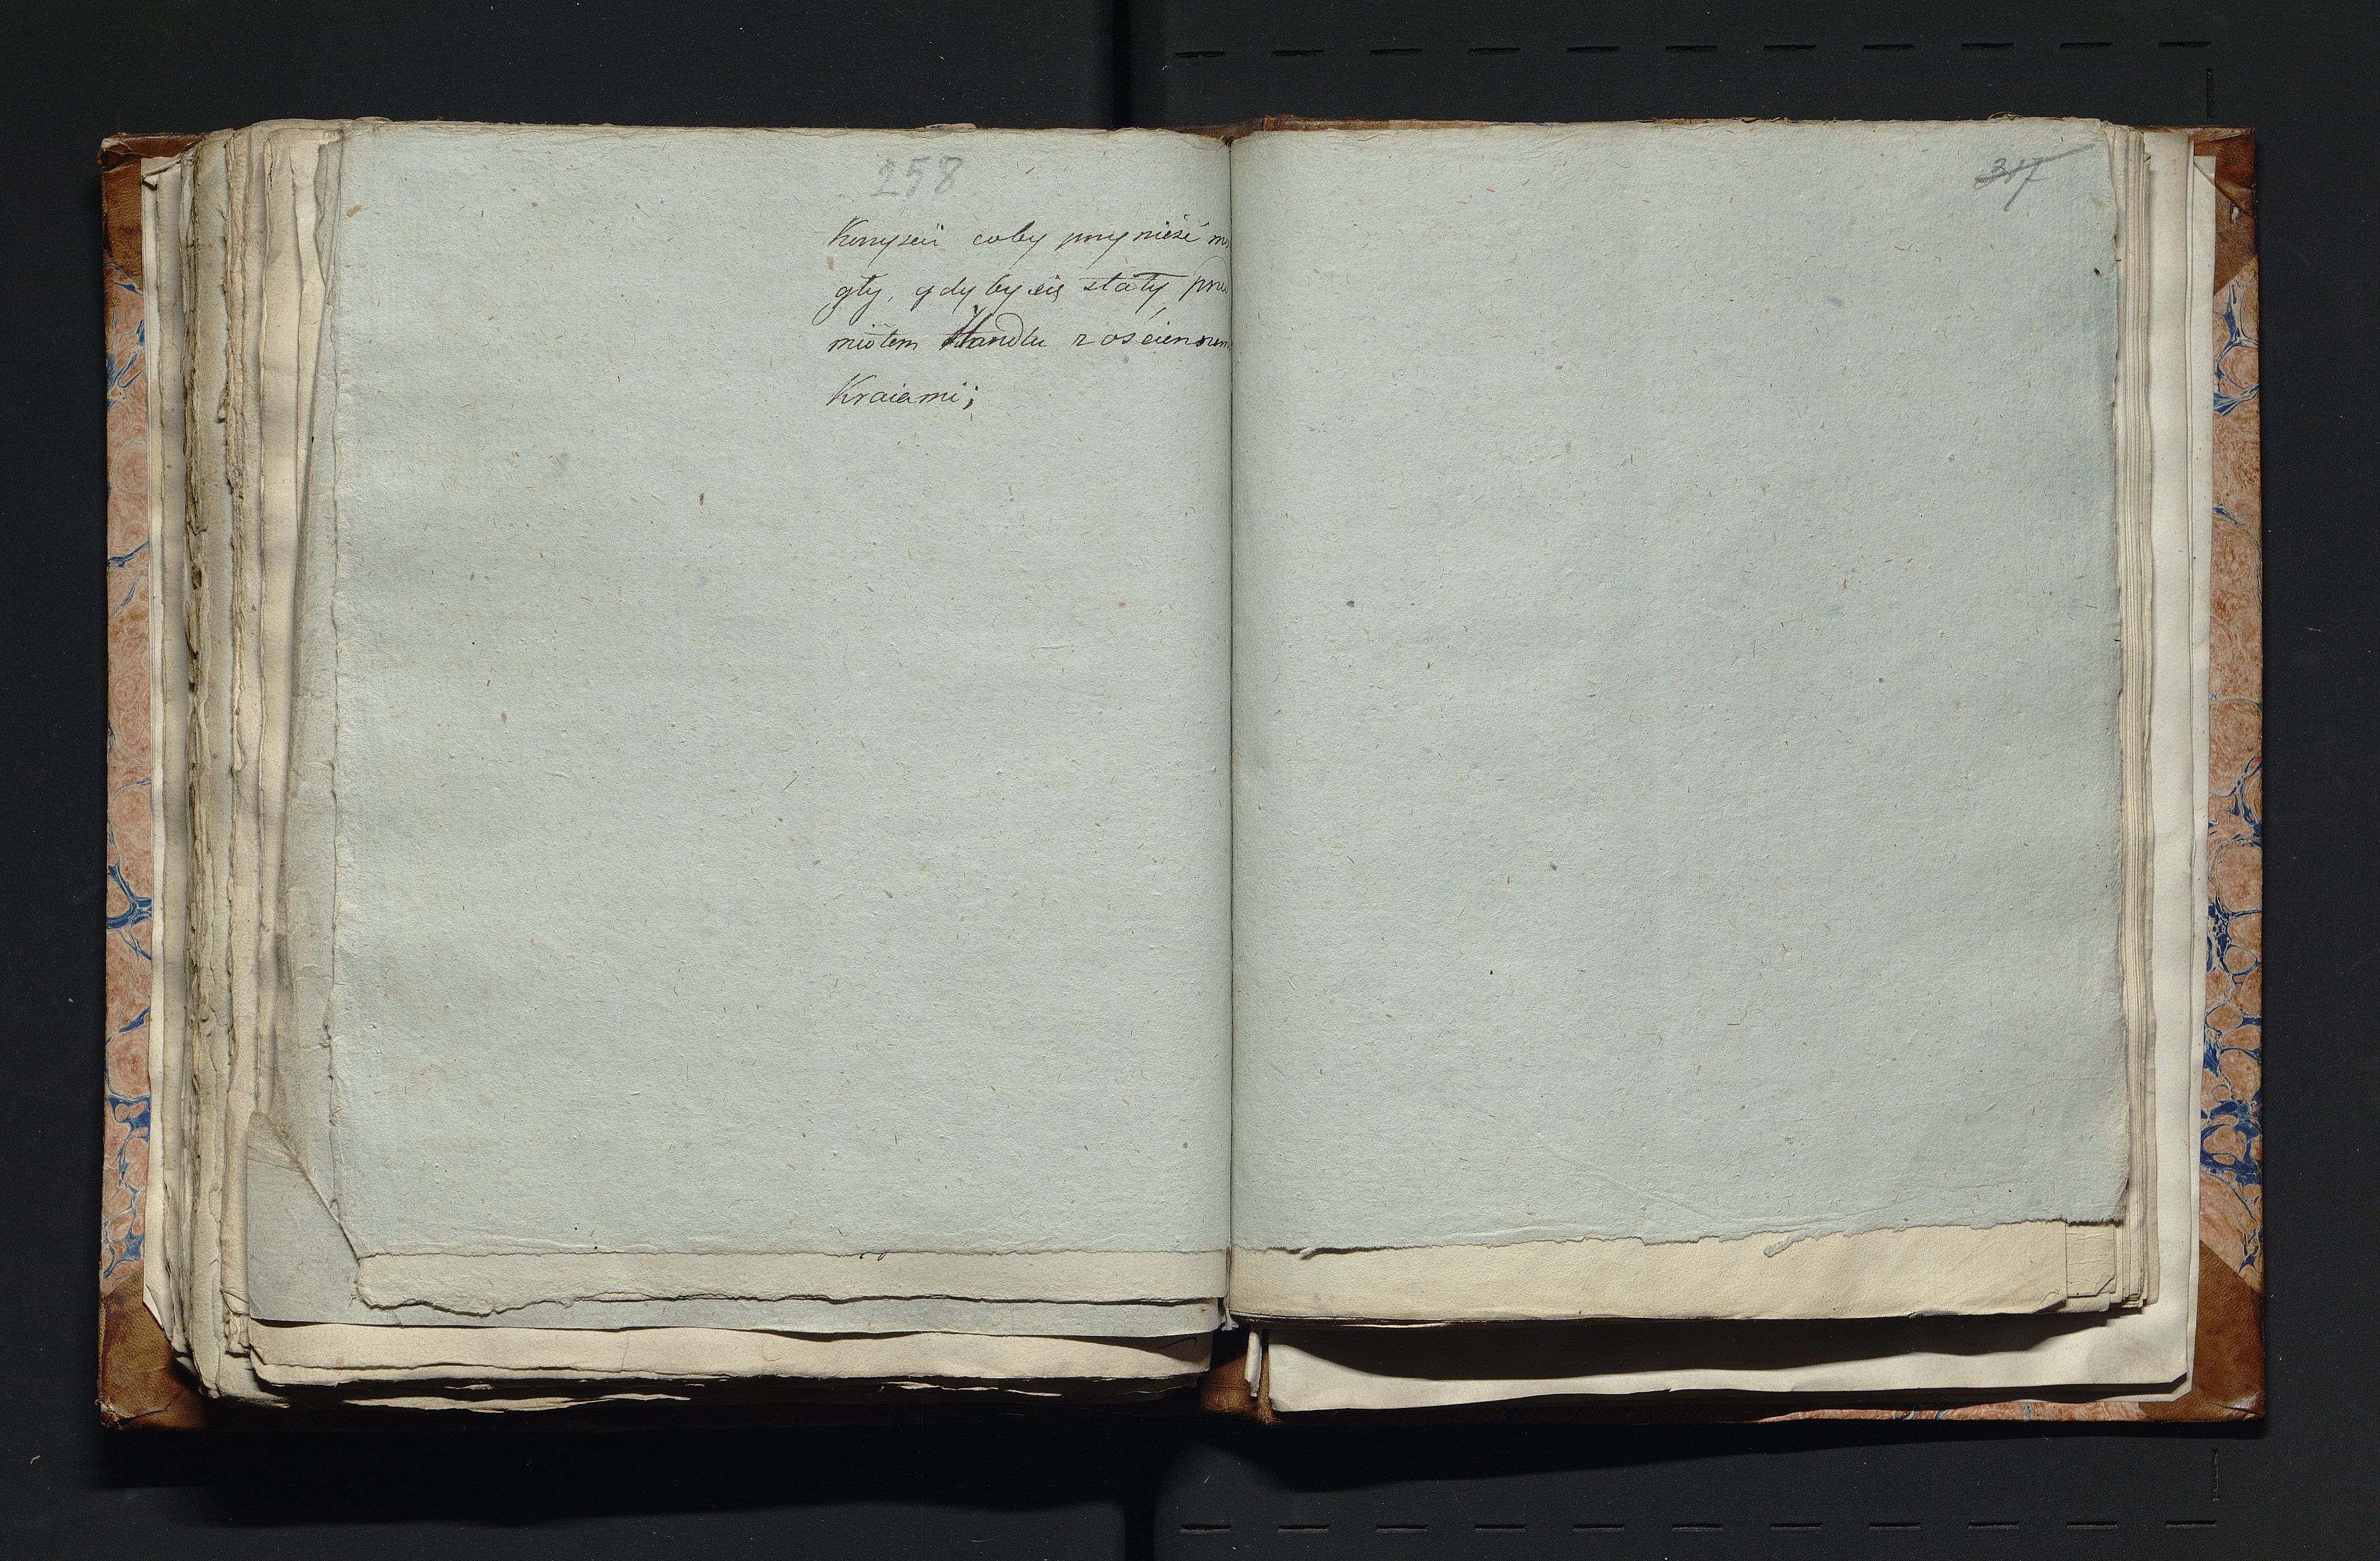 258
Korzyści coby przynieść mo
gły, gdyby się stały prze
miotem Handlu z ościennemi
Kraiami;
317